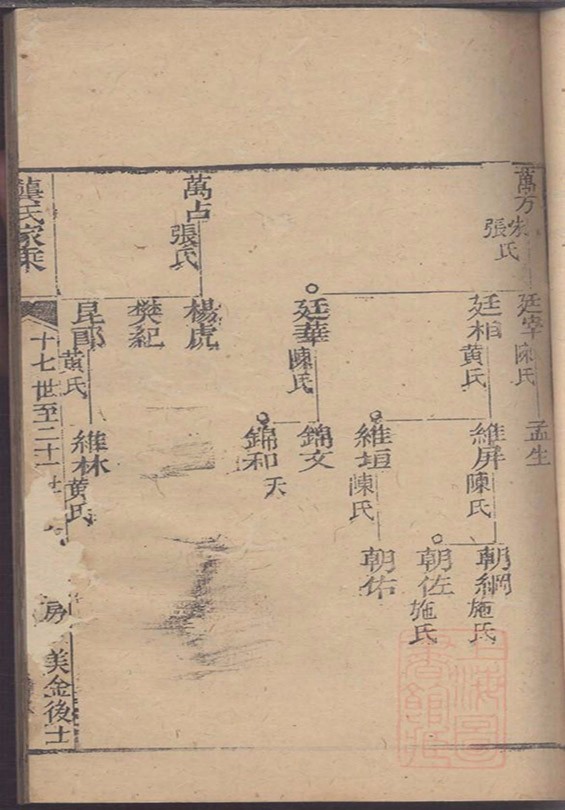 張氏
廷宰 陳氏
孟生
廷相 黄氏
維屏 陳氏
朝綱 施氏
朝佐 施氏
維垣 陳氏
朝佑
廷華 陳氏
錦文
錦和 夭
萬占 張氏
楊虎
樊紀
黄氏
維林 黄氏
龔氏家乘
十七世至二十一世
房
美金後士